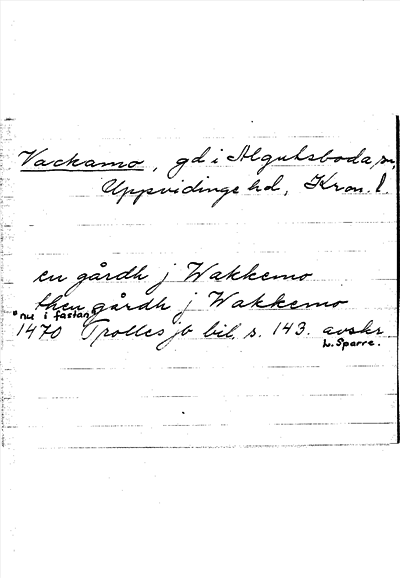 Vackamo, gd i Algutsboda sn,
Uppvidinge hd, Kron. l.
en gårdh j Wakkemo
then gårdh j Wakkemo
"nu i fastan"
1470 Trolles jb bil. s. 143. avskr
L. Sparre.